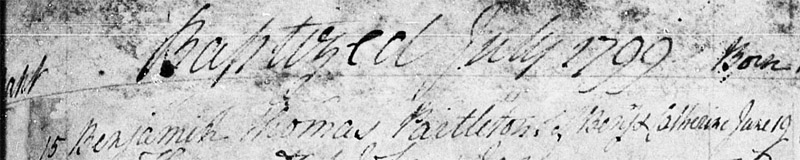 Baptized July 1799 Born
15 Benjamin Thomas Bartleton Benj & Catherine June 19